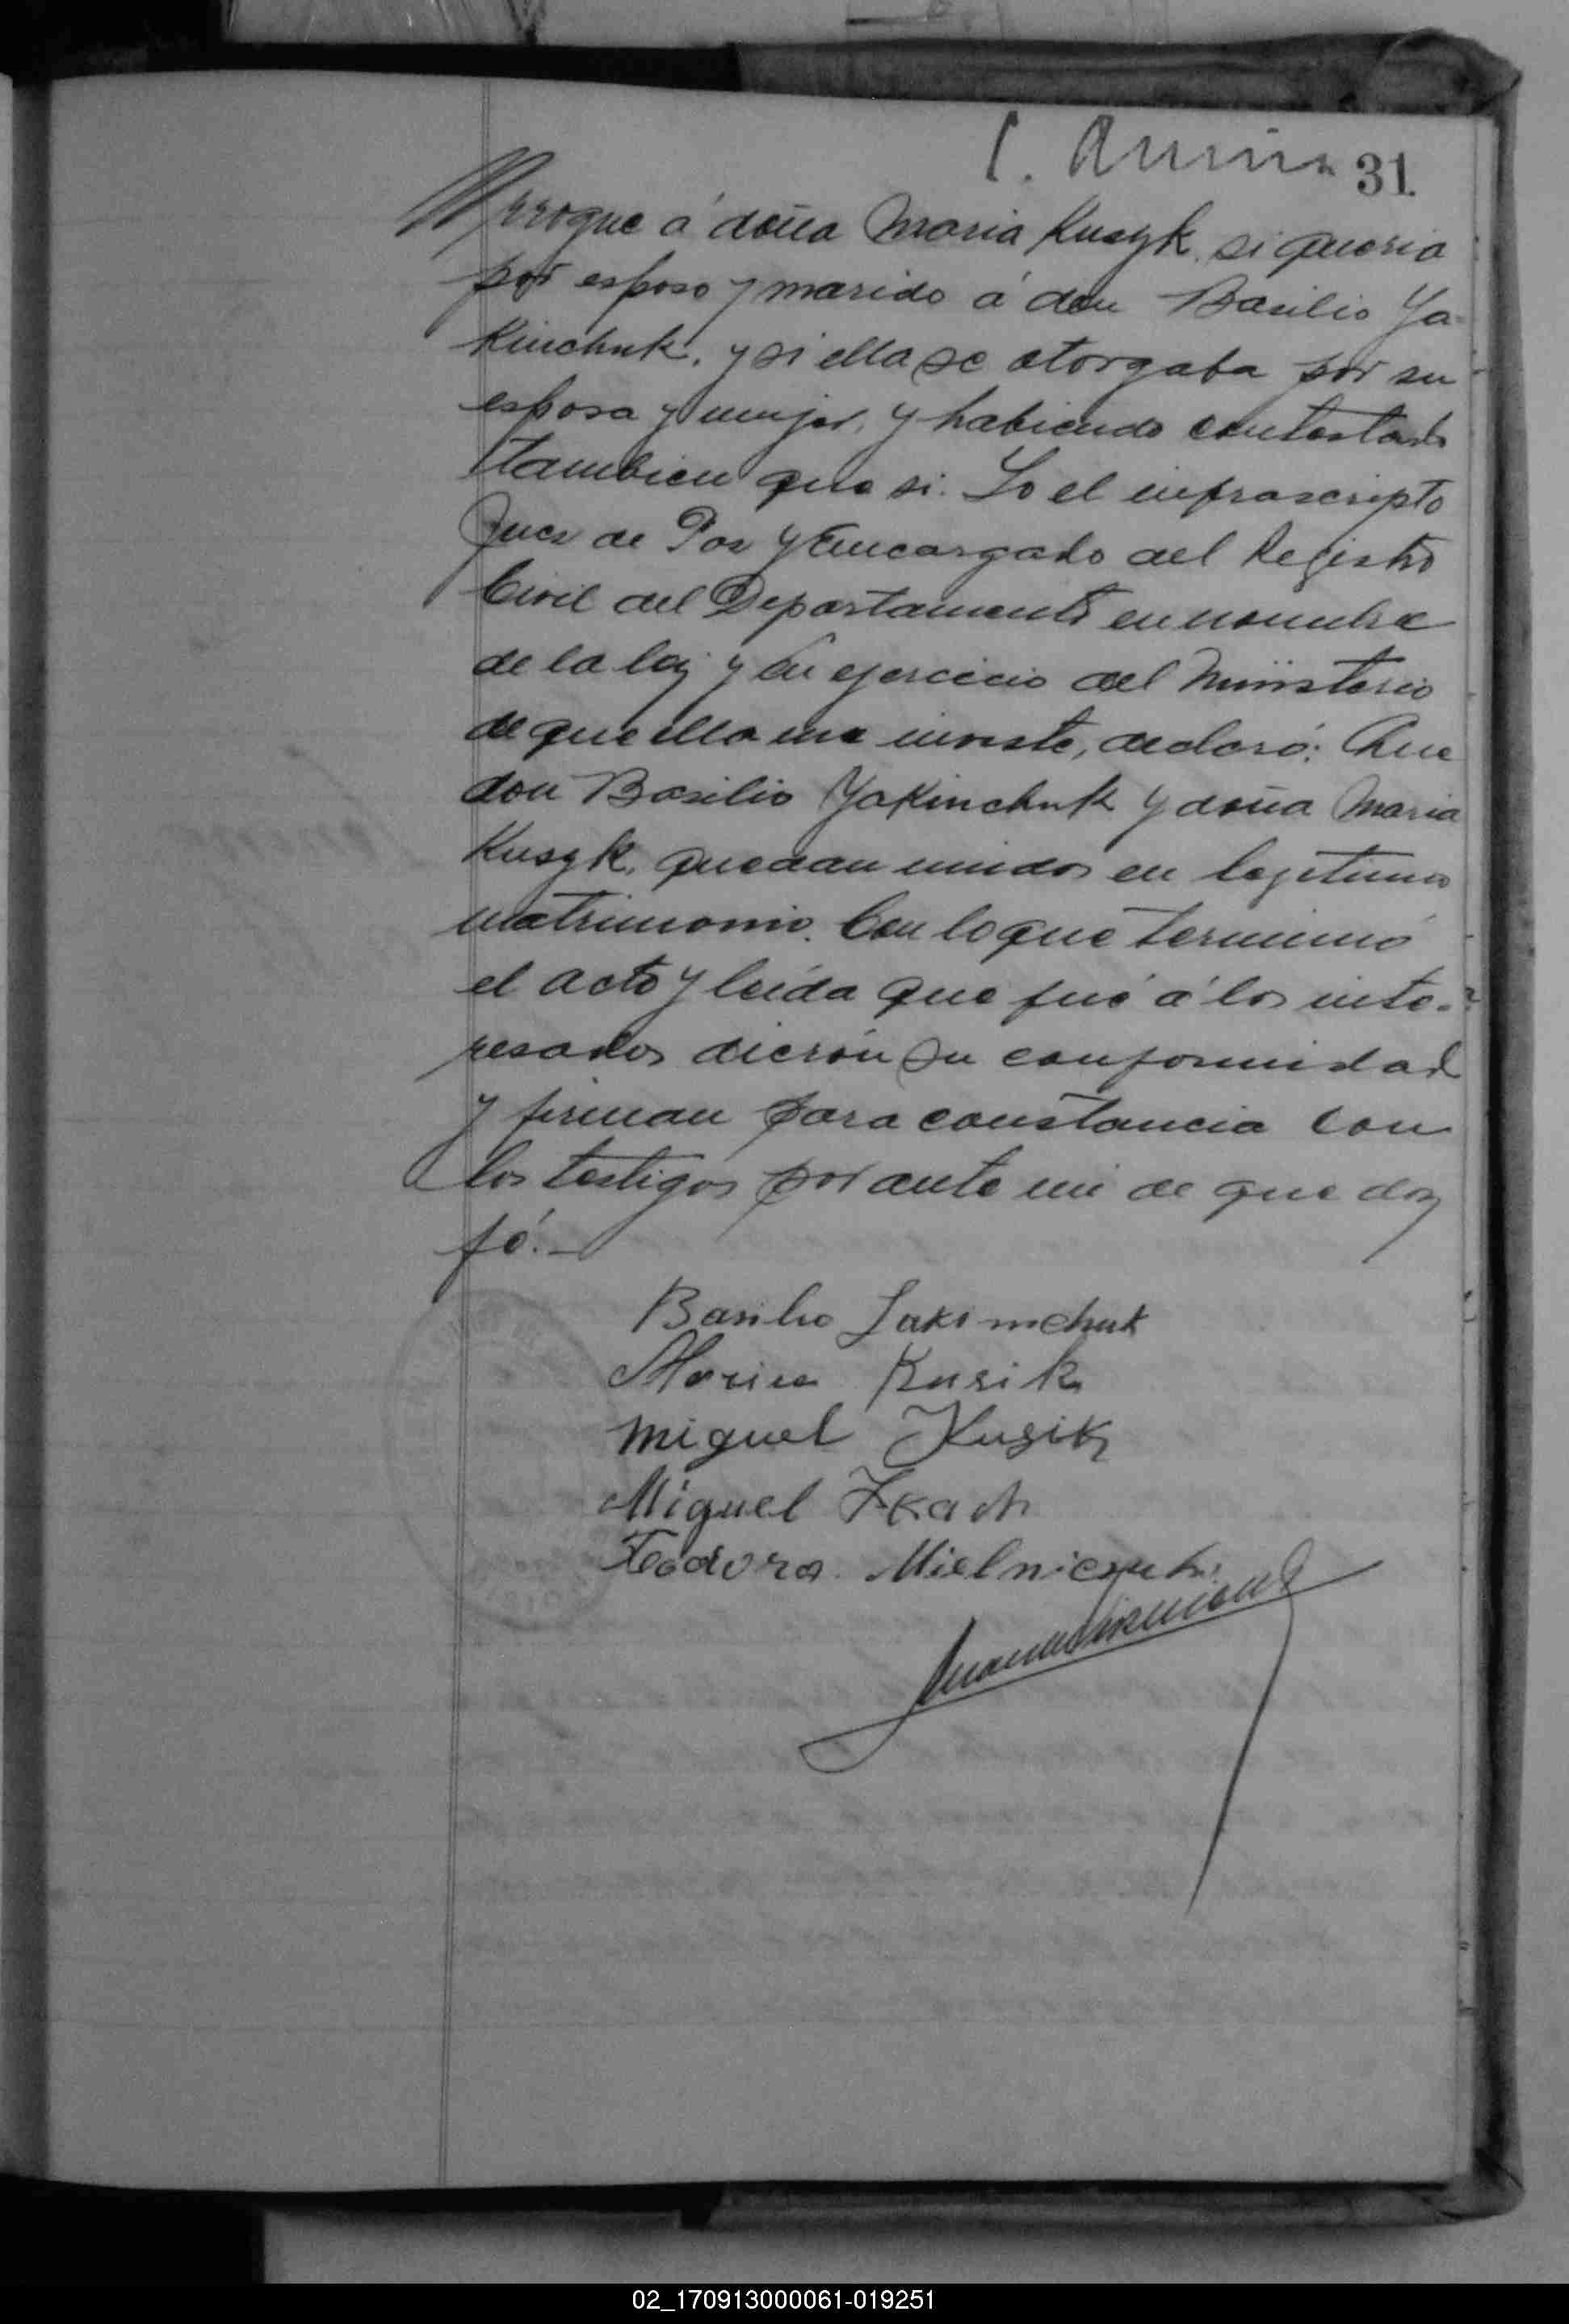 31.
rrogue á doña Maria Kusyk, si queria
por esposo y marido á don Basilio Ya-
kinchuk, y si ella se otorgaba por su
esposa y mujer, y habiendo contestado
tambien que si. Yo el infrascripto
Juez de Paz y Encargado del Registro
Civil del Departamento en nombre
de la ley y en ejercicio del Ministerio
de que ella me inviste, declaró: Que
don Basilio Yakinchuk y doña Maria
Kusyk, quedan unidos en legitimo
matrimonio. Con lo que terminó
el acto y leída que fué á los inte-
resados dierón su conformidad
y firman para constancia con
los testigos por ante mi de que doy
fé.—
Basilio Jakimchuk
Maria Kusik
Miguel Kusik
Miguel
Teodora Mielniczuk
02_170913000061-019251